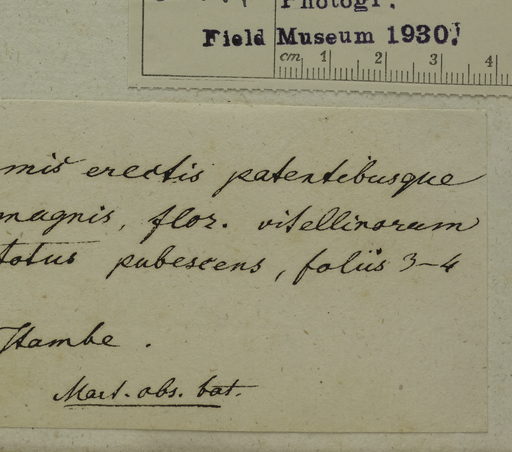 Photogr.
Field Museum 1930.
cm 1 2 3 4
mis erectis patentibusque
magnis, flor. vitellinorum
totus pubescens, foliis 3-4
Itambe.
Mart. obs. bot.